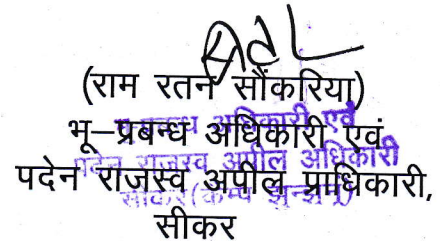 (राम रतन सौंकरिया)
भू–प्रबन्ध अधिकारी एवं
पदेन राजस्व अपील प्राधिकारी,
सीकर
अधिकारी एवं
पदेन राजस्व अपील अधिकारी
सीकर (कैम्प झुन्झुनू)